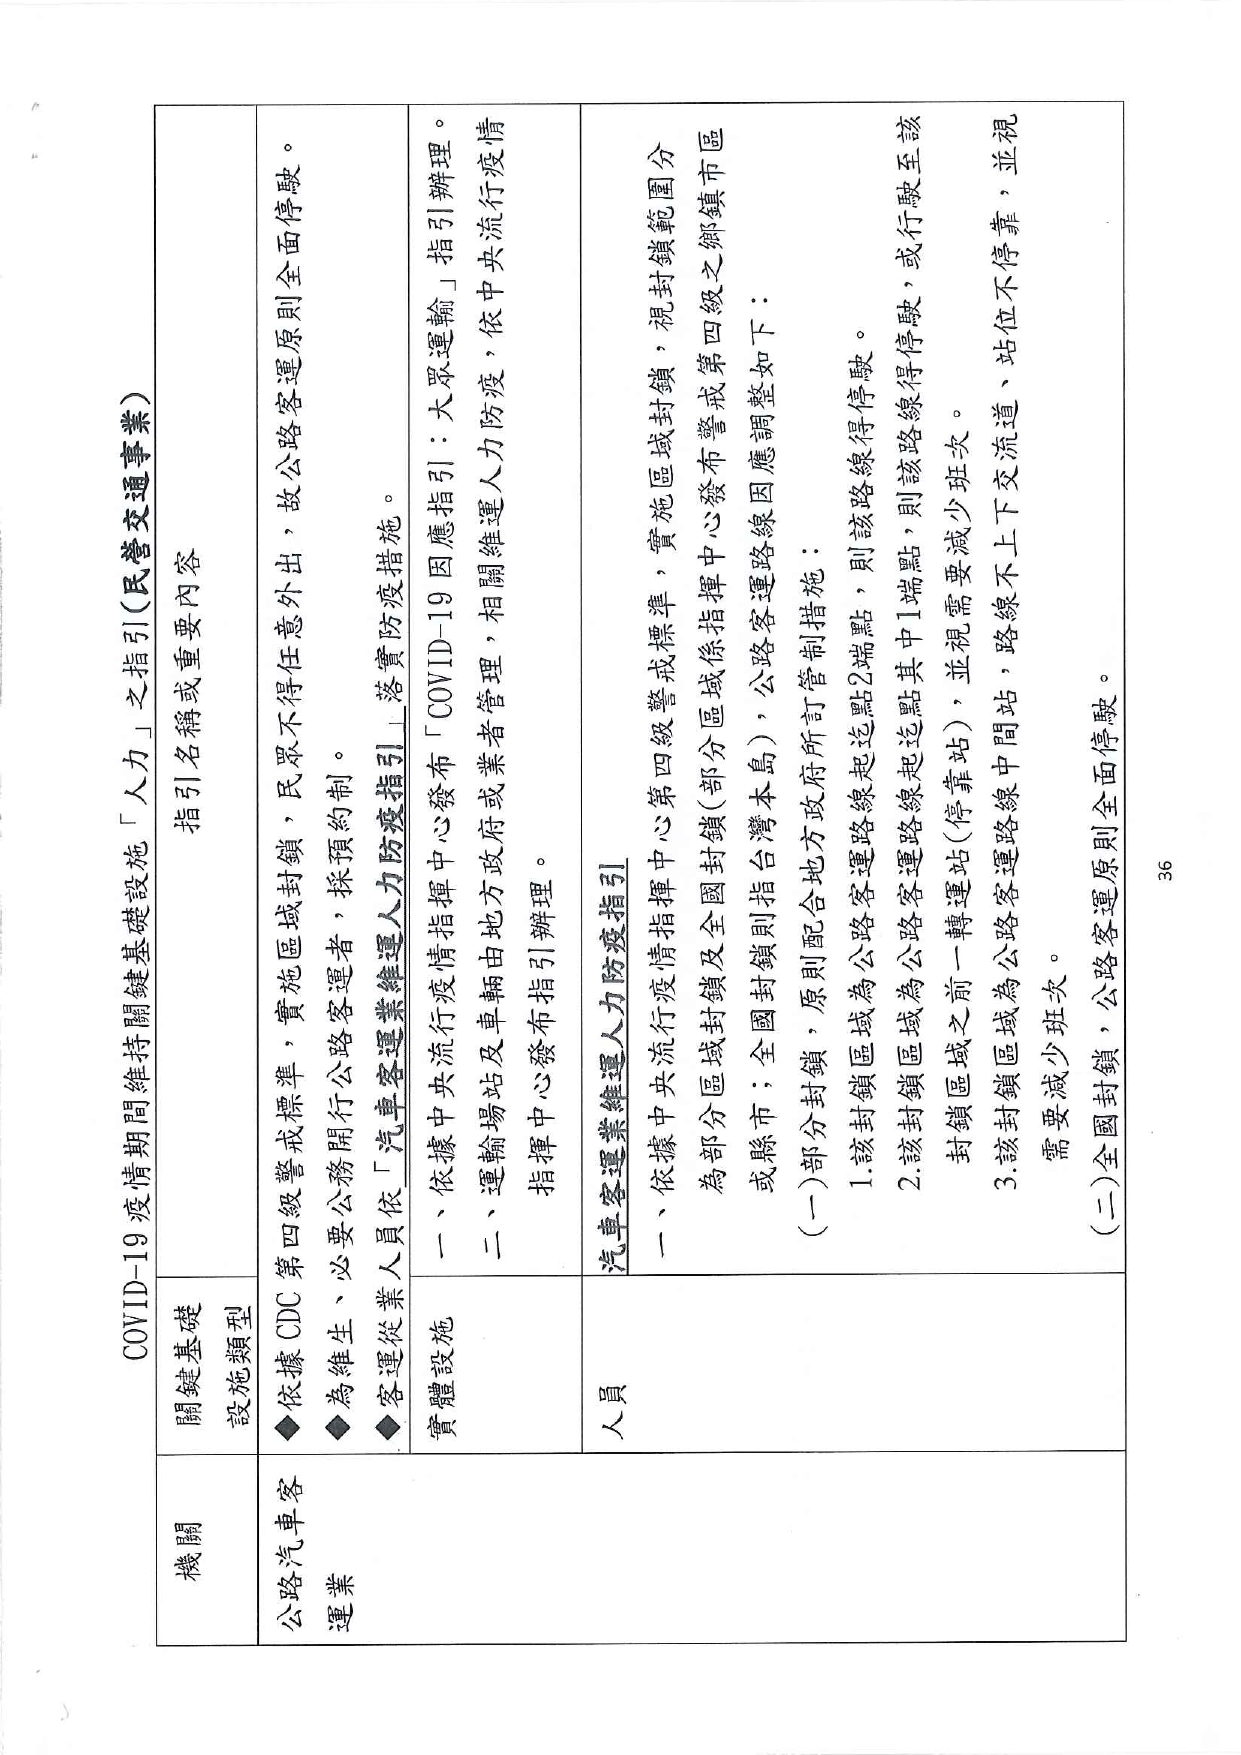 COVID-19 疫情期間維持關鍵基礎設施「人力」之指引(民營交通事業)
機關
關鍵基礎
設施類型
指引名稱或重要內容
公路汽車客
運業
◆依據 CDC 第四級警戒標準，實施區域封鎖，民眾不得任意外出，故公路客運原則全面停駛。
◆為維生、必要公務開行公路客運者，採預約制。
◆客運從業人員依「汽車客運業維運人力防疫指引」落實防疫措施。
實體設施
一、依據中央流行疫情指揮中心發布「COVID-19 因應指引：大眾運輸」指引辦理。
二、運輸場站及車輛由地方政府或業者管理，相關維運人力防疫，依中央流行疫情
指揮中心發布指引辦理。
人員
汽車客運業維運人力防疫指引
一、依據中央流行疫情指揮中心第四級警戒標準，實施區域封鎖，視封鎖範圍分
為部分區域封鎖及全國封鎖(部分區域係指揮中心發布警戒第四級之鄉鎮市區
或縣市；全國封鎖則指台灣本島)，公路客運路線因應調整如下：
(一)部分封鎖，原則配合地方政府所訂管制措施：
1.該封鎖區域為公路客運路線起迄點2端點，則該路線得停駛。
2.該封鎖區域為公路客運路線起迄點其中1端點，則該路線得停駛，或行駛至該
封鎖區域之前一轉運站(停靠站)，並視需要減少班次。
3.該封鎖區域為公路客運路線中間站，路線不上下交流道、站位不停靠，並視
需要減少班次。
(二)全國封鎖，公路客運原則全面停駛。
36